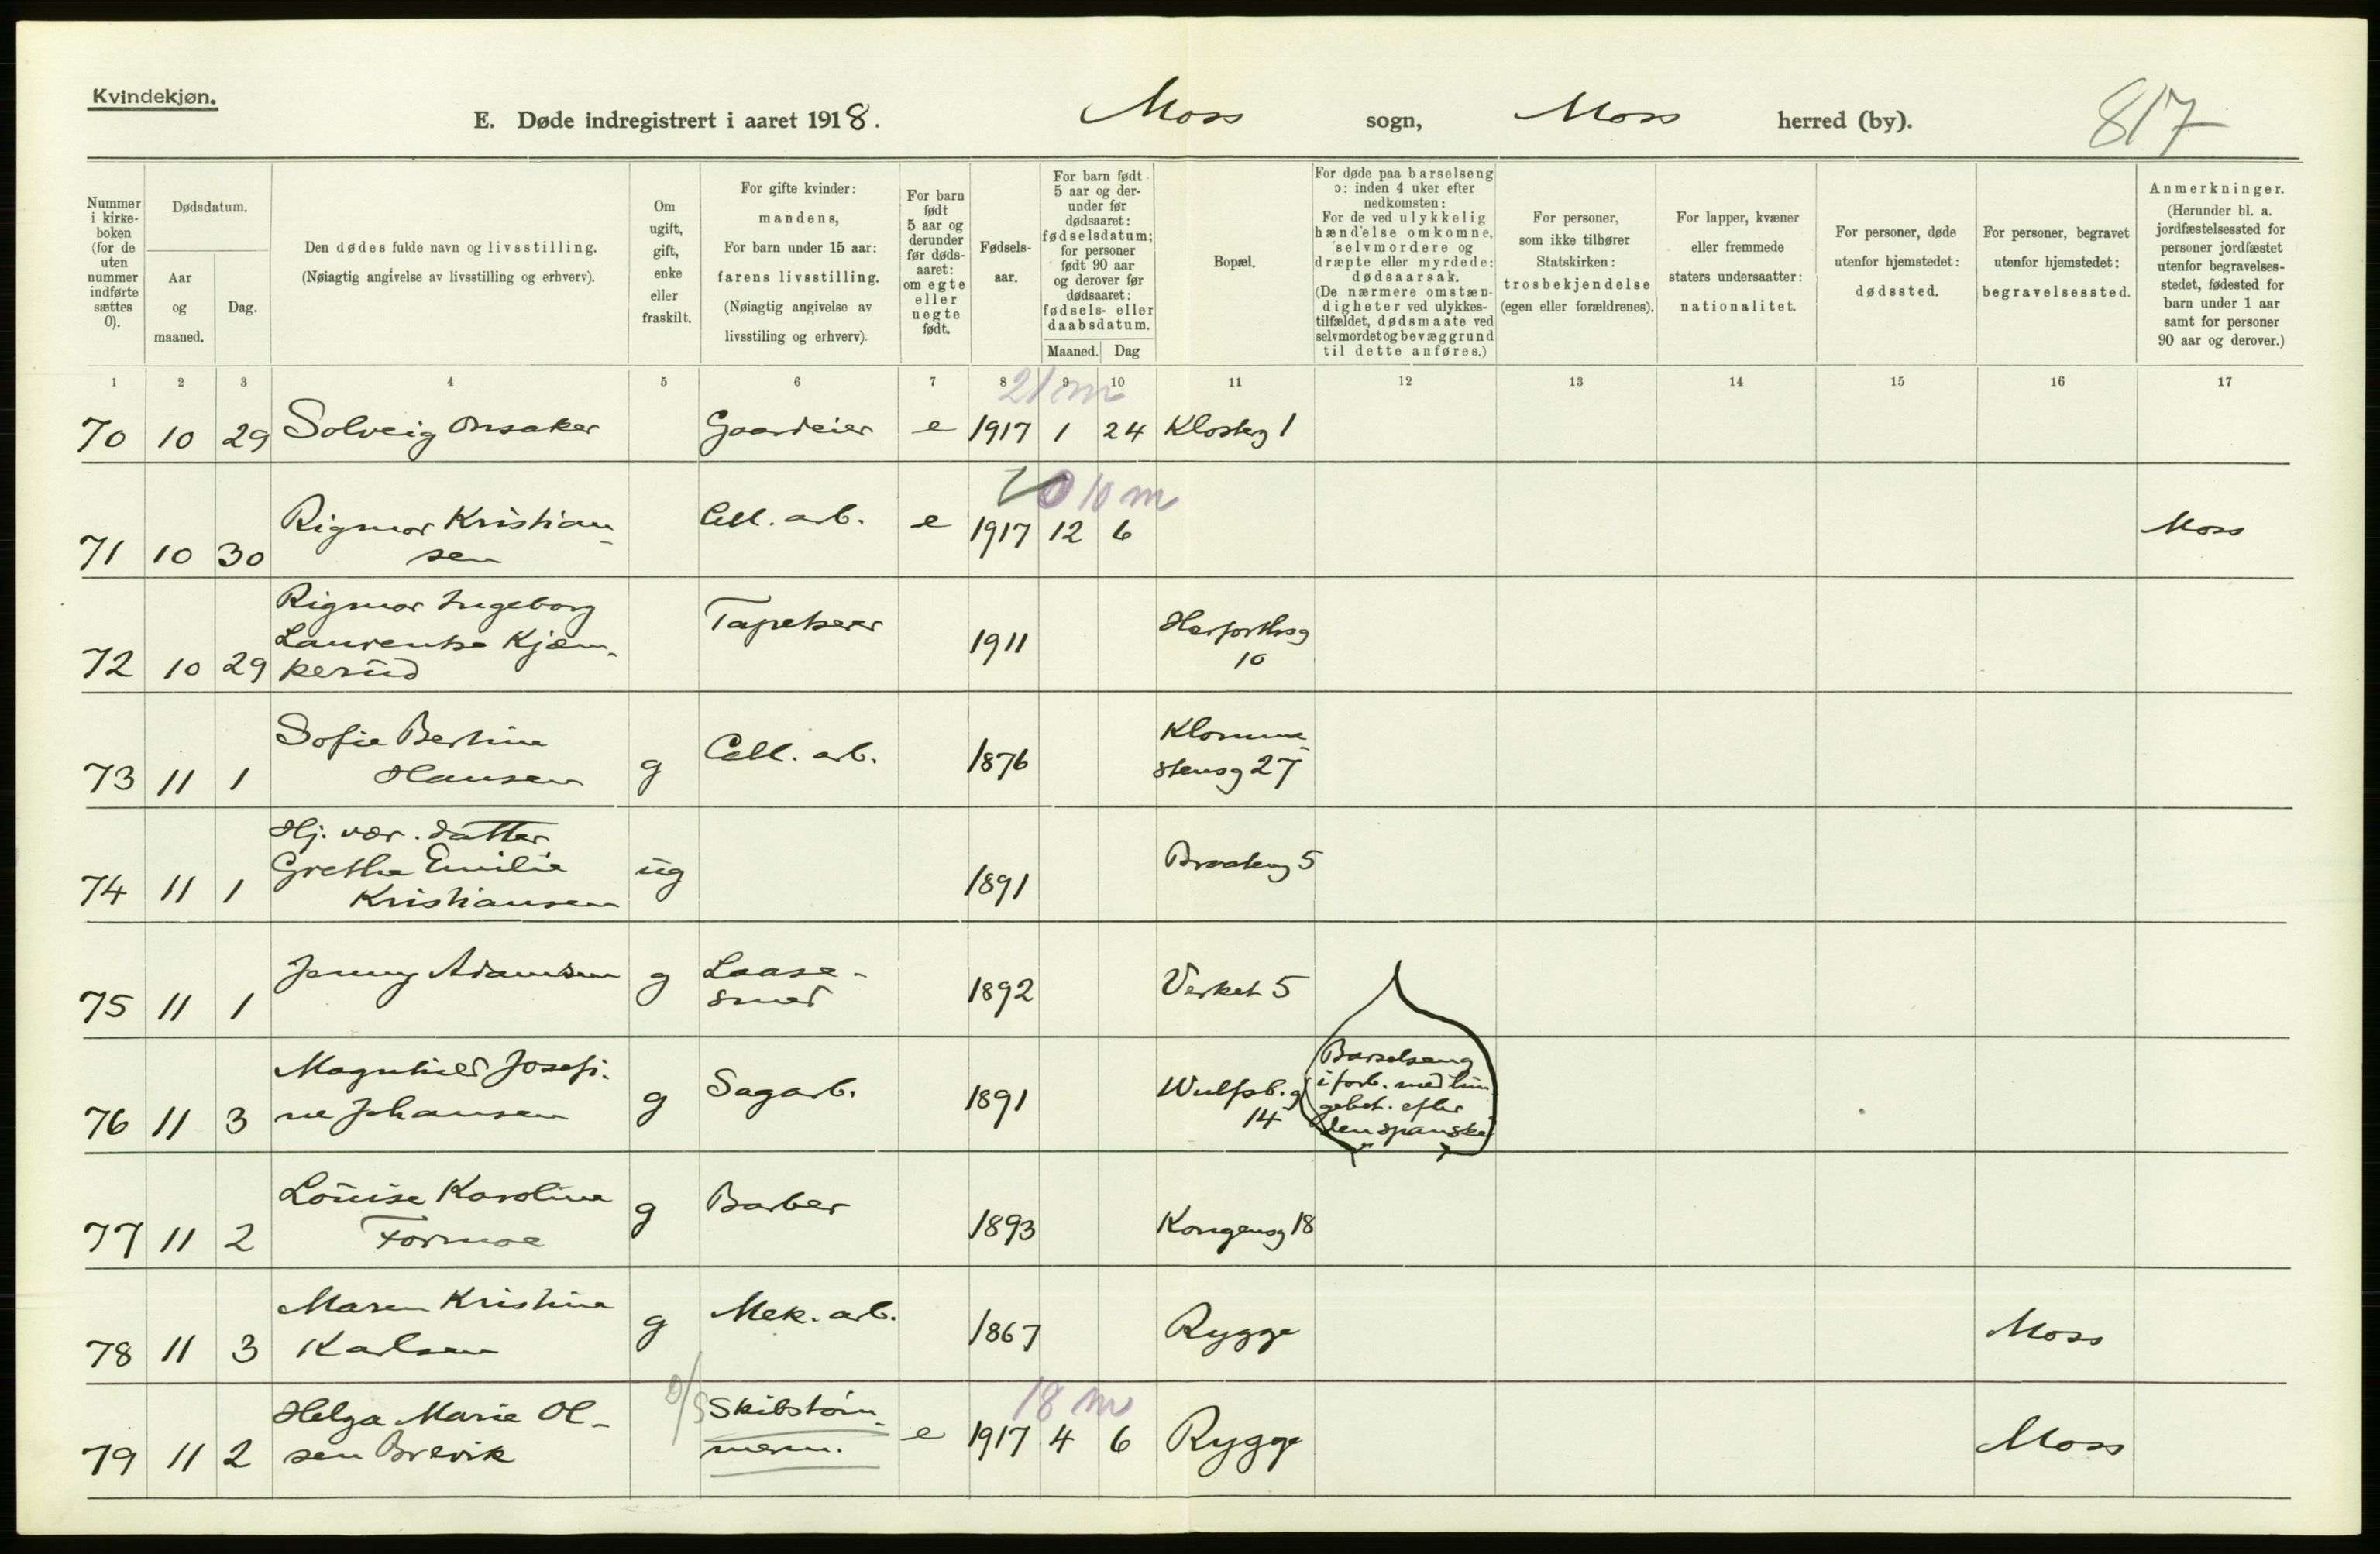 Kvindekjøn.
E. Døde indregistrert i aaret 1918. Moss sogn, Moss herred (by). 817
Nummer i kirke-boken (for de uten nummer indførte sættes 0).
Dødsdatum.
Aar og maaned.
Dag.
Den dødes fulde navn og livsstilling.
(Nøiagtig angivelse av livsstilling og erhverv).
Om ugift, gift, enke eller fraskilt.
For gifte kvinder: mandens,
For barn under 15 aar: farens livsstilling.
(Nøiagtig angivelse av livsstiling og erhverv).
For barn født 5 aar og derunder før døds-aaret: om egte eller uegte født.
Fødsels-aar.
For barn født 5 aar og der-under før dødsaaret: fødselsdatum; for personer født 90 aar og derover før dødsaaret: fødsels- eller daabsdatum.
Maaned. Dag
Bopæl.
For døde paa barselseng ɔ: inden 4 uker efter nedkomsten:
For de ved ulykkelig hændelse omkomne, selvmordere og dræpte eller myrdede: dødsaarsak.
(De nærmere omstæn-digheter ved ulykkes-tilfældet, dødsmaate ved selvmordet og bevæggrund til dette anføres.)
For personer, som ikke tilhører Statskirken: trosbekjendelse (egen eller forældrenes).
For lapper, kvæner eller fremmede staters undersaatter: nationalitet.
For personer, døde utenfor hjemstedet: dødssted.
For personer, begravet utenfor hjemstedet: begravelsessted.
Anmerkninger.
(Herunder bl. a. jordfæstelsessted for personer jordfæstet utenfor begravelses-stedet, fødested for barn under 1 aar samt for personer 90 aar og derover.)
1 2 3 4 5 6 7 8 9 10 11 12 13 14 15 16 17
21 m
70 10 29 Solveig Onsaker Gaardeier e 1917 1 24 Klosterg 1
0 10 m
71 10 30 Rigmor Kristian-
sen Cell. arb. e 1917 12 6 Moss
72 10 29 Rigmor Ingeborg
Laurentse Kjæm-
kerud Tapetserer 1911
10
73 11 1 Sofie Bertine
Hansen g Cell. arb. 1876
stensg 27
74 11 1 Hj. vær. datter
Grethe Emilie
Kristiansen ug 1891 Braateng 5
75 11 1 Jenny Adamsen g Laase-
smed 1892 Verket 5
76 11 3 Magnhild Josefi-
ne Johansen g Sagarb. 1891 Wulfsb. g
14
Barselseng
i forb. med lun
gebet. efter
den spanske
77 11 2 Louise Karoline
Formoe g Barber 1893 Kongensg 18
78 11 3 Maren Kristine
Karlsen g Mek. arb. 1867 Rygge Moss
18 m
79 11 2 Helga Marie Ol-
sen Brevik Skibstøm-
merm. e 1917 4 6 Rygge Moss